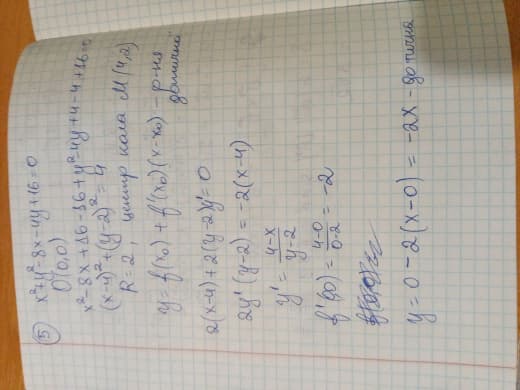 5) x²+y²-8x-4y+16=0
O(0,0)
x²-8x+16-16+y²-4y+4-4+16=0
(x-4)²+(y-2)²=4
R=2, центр кола M(4,2)
y=f(x₀)+f'(x₀)(x-x₀) - р-ня
дотичної
2(x-4)+2(y-2)y'=0
2y'(y-2)=-2(x-4)
y'=\frac{4-x}{y-2}
f'(0)=\frac{4-0}{0-2}=-2
y=0-2(x-0)=-2x - дотична